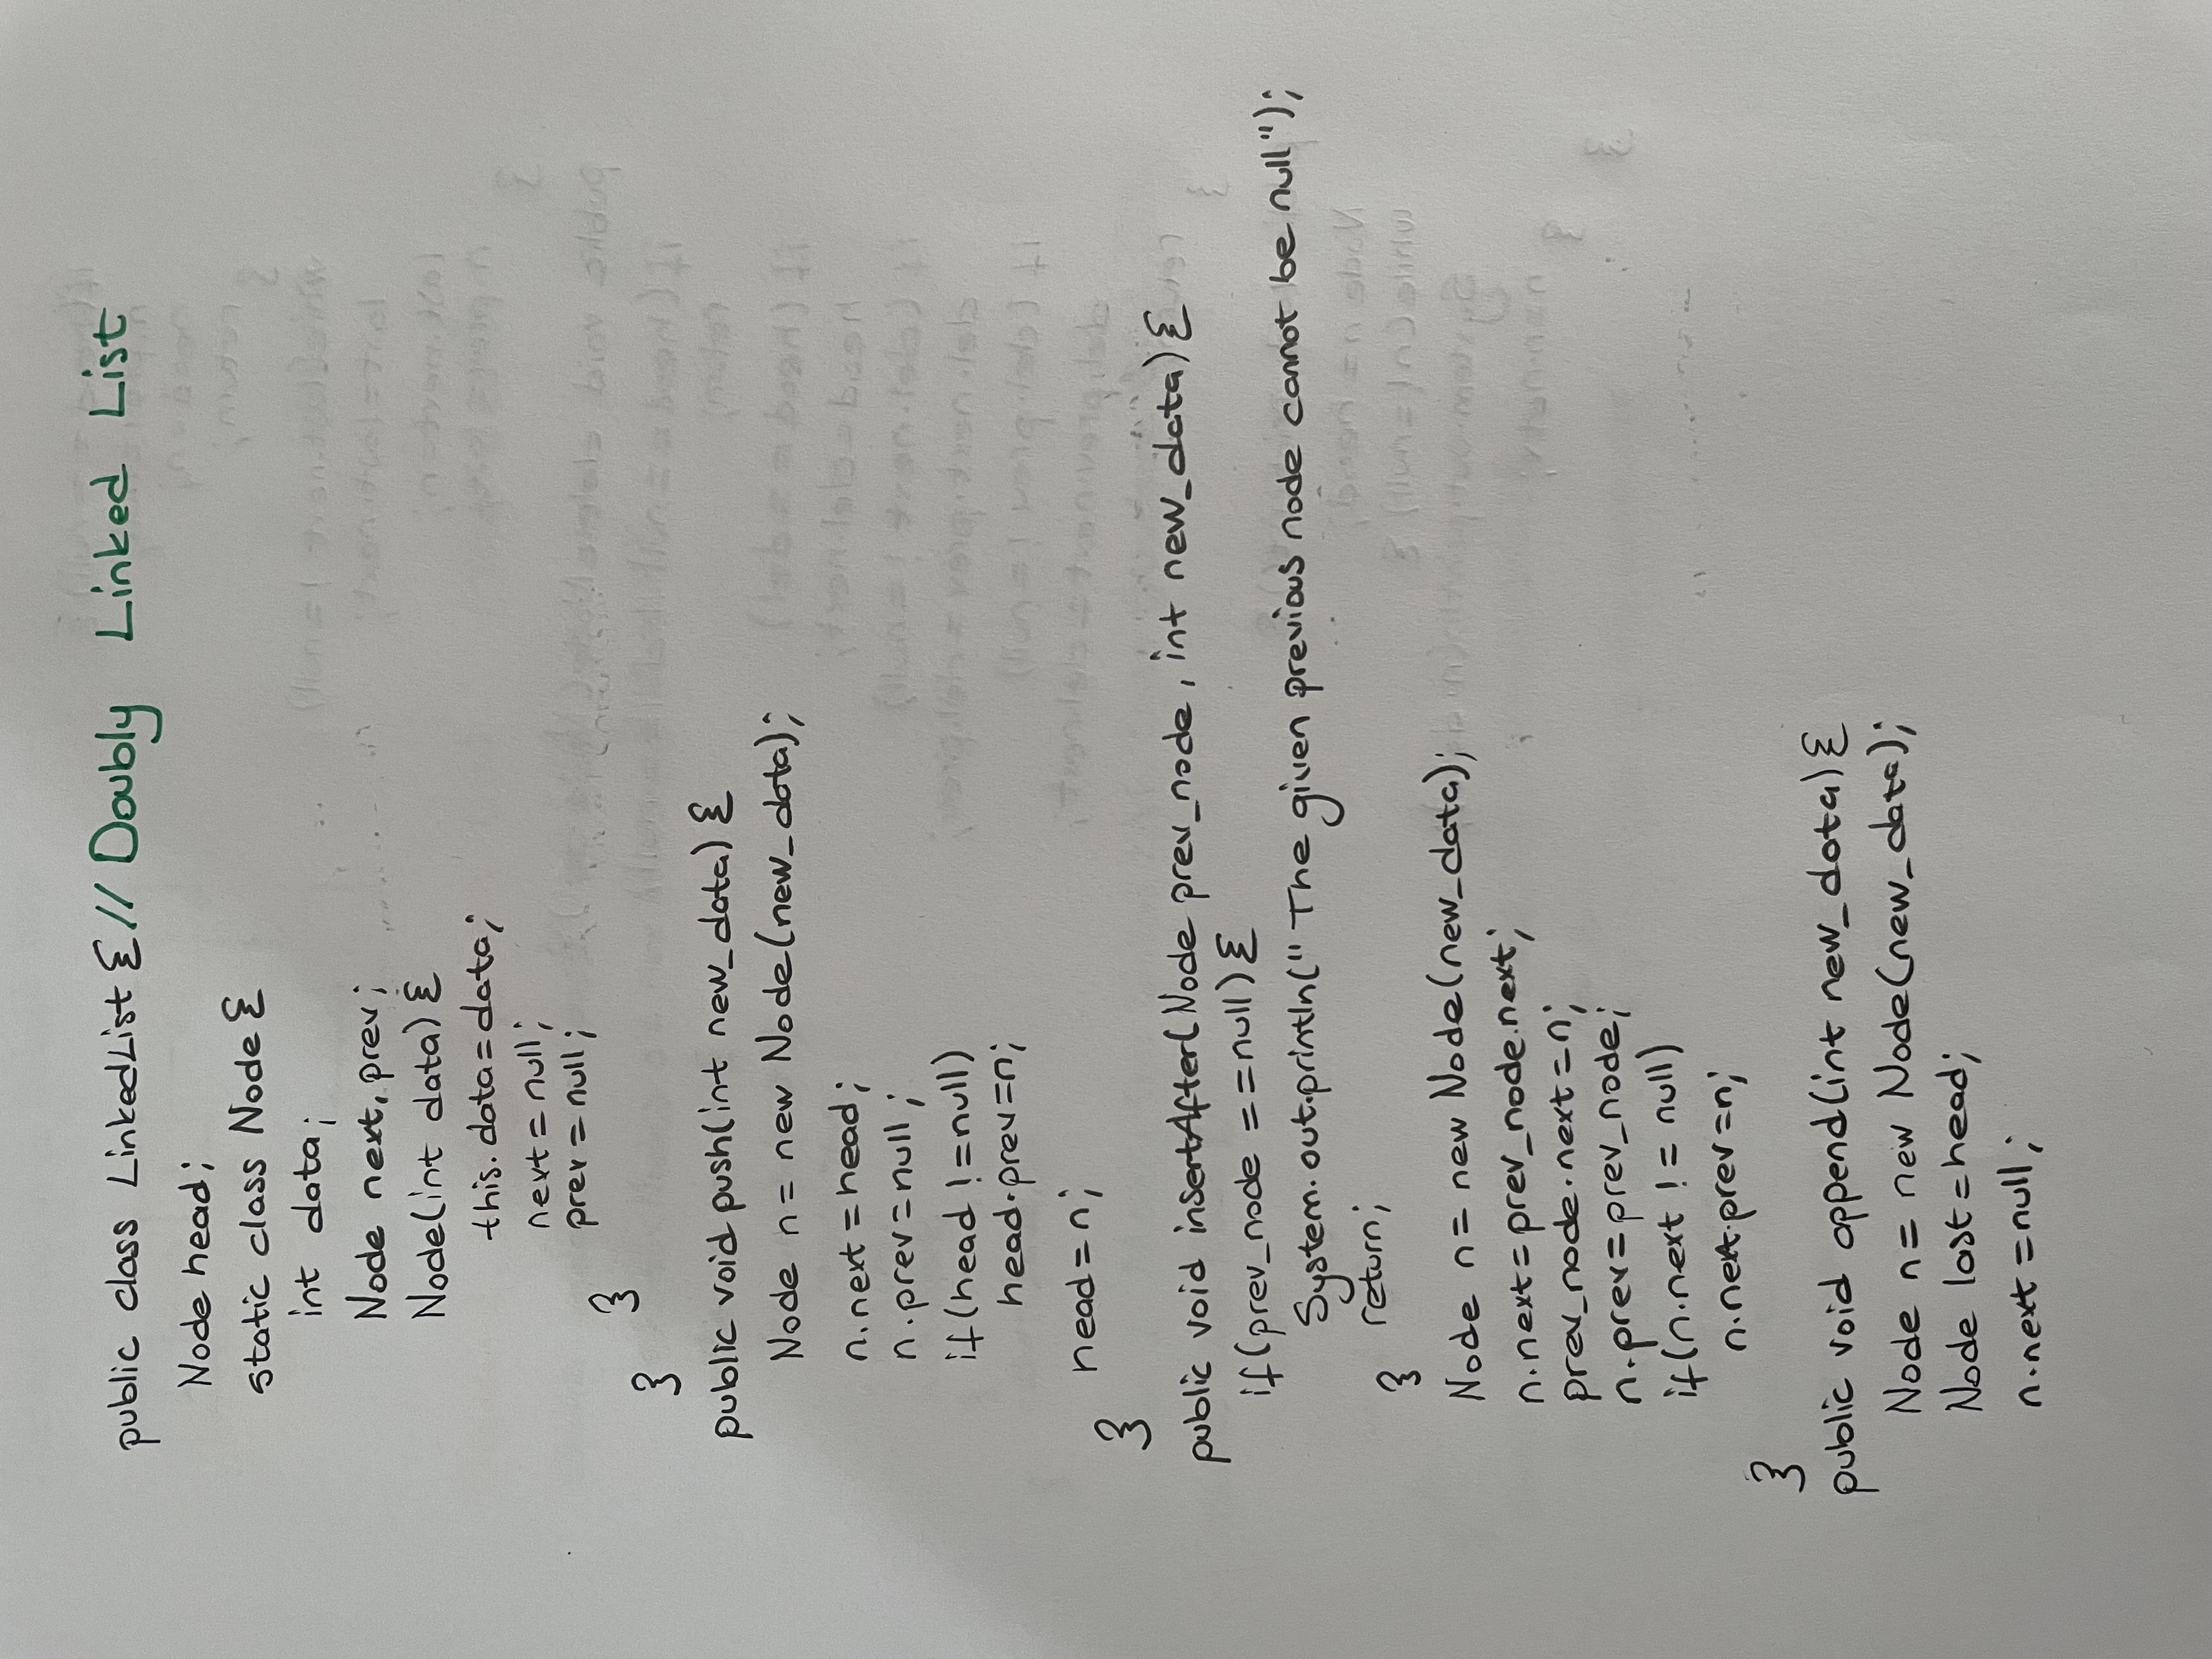 public class LinkedList { // Doubly Linked List
Node head;
static class Node {
int data;
Node next, prev;
Node(int data) {
this.data=data;
next = null;
prev = null;
}
}
public void push(int new_data) {
Node n = new Node(new_data);
n.next = head;
n.prev=null;
if(head !=null)
head.prev=n;
head=n;
}
public void insertAfter(Node prev_node, int new_data) {
if(prev_node ==null) {
System.out.println("The given previous node cannot be null");
return;
}
Node n = new Node(new_data);
n.next=prev_node.next;
prev_node.next=n;
n.prev=prev_node;
if(n.next != null)
n.next.prev=n;
}
public void append(int new_data) {
Node n = new Node(new_data);
Node last=head;
n.next=null;